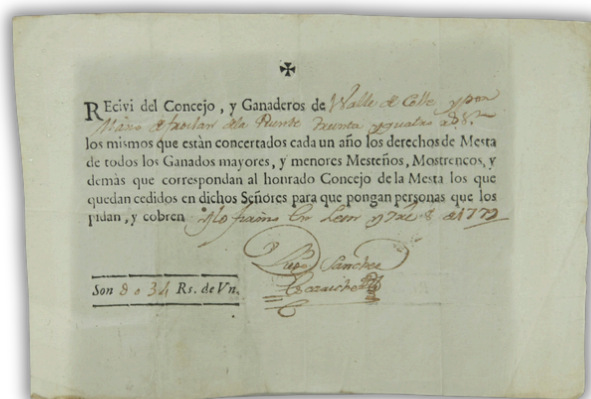 ✠
REcivi del Concejo, y Ganaderos de Valle de Colle y por
Mano de froilan de la Puente treinta y quatro
los mismos que estàn concertados cada un año los derechos de Mesta
de todos los Ganados mayores, y menores Mesteños, Mostrencos, y
demàs que correspondan al honrado Concejo de la Mesta los que
quedan cedidos en dichos Señores para que pongan personas que los
pidan, y cobren y lo firmo En Leon y de 1772
Sanchez
Son 34 Rs. de Vn.